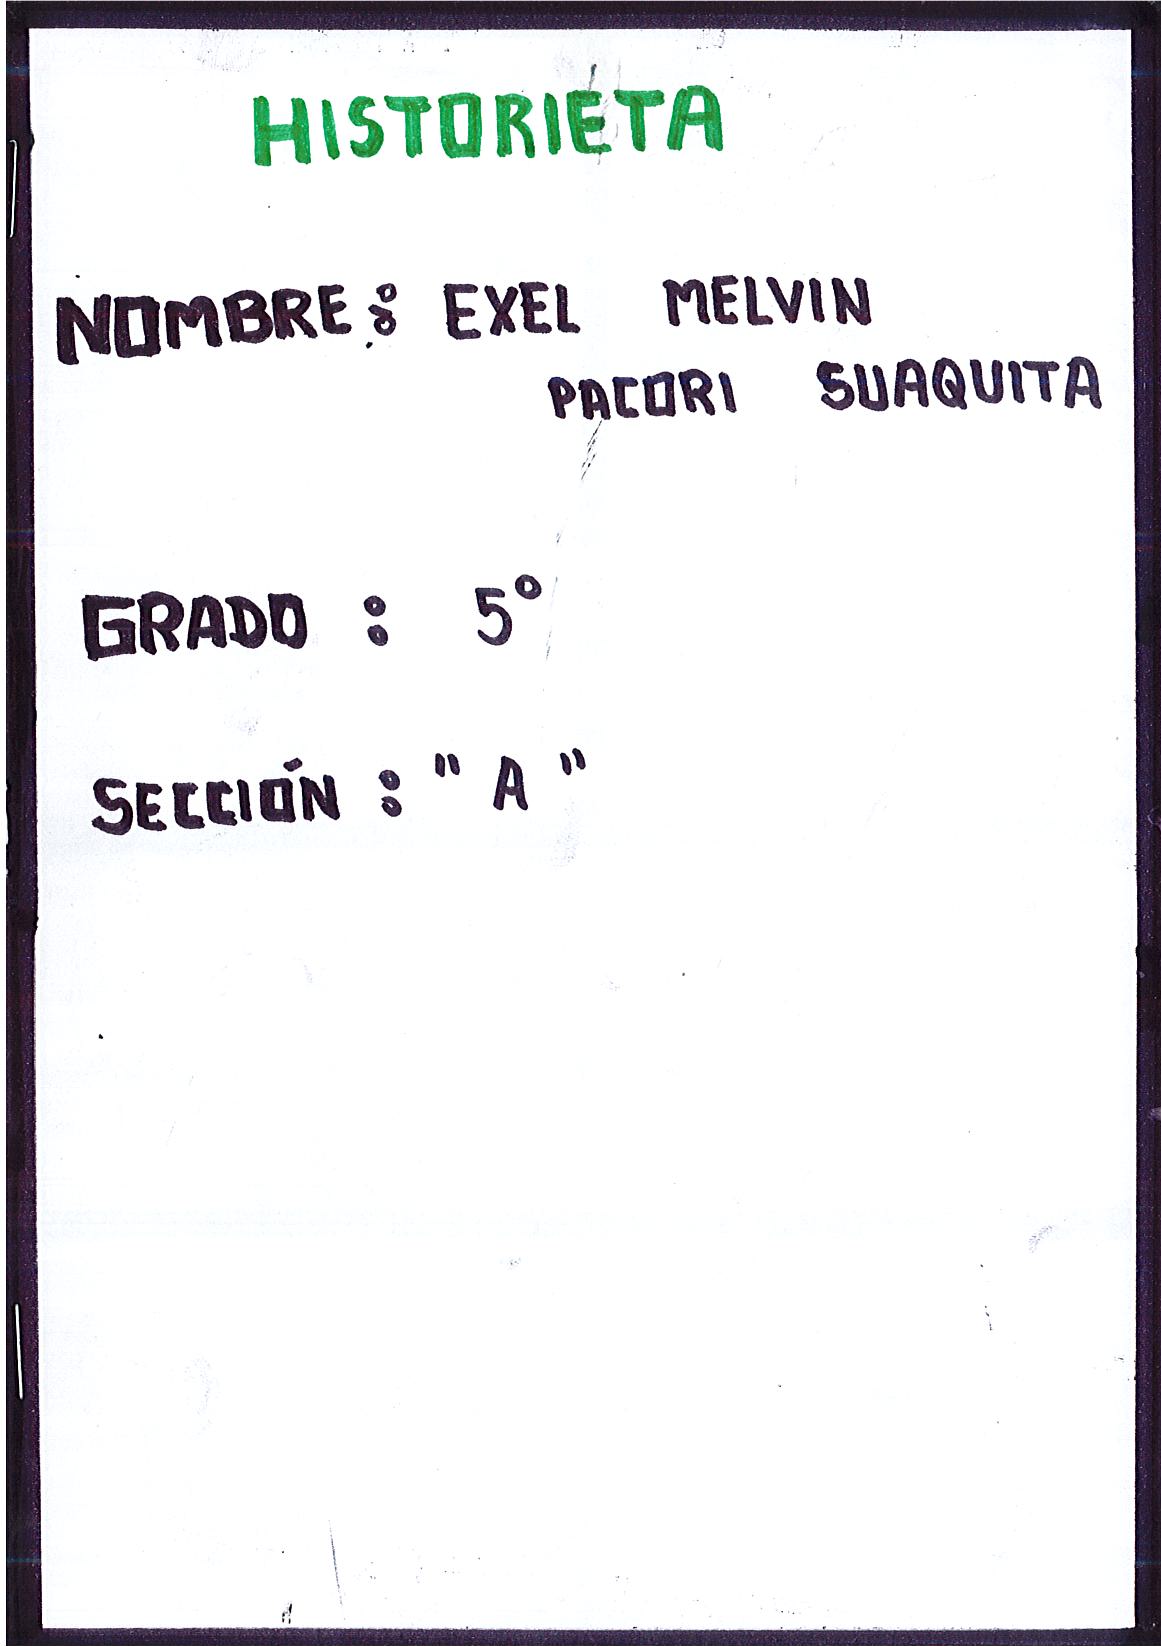 HISTORIETA
NOMBRE: EXEL MELVIN
PACORI SUAQUITA
GRADO : 5°
SECCIÓN : "A"